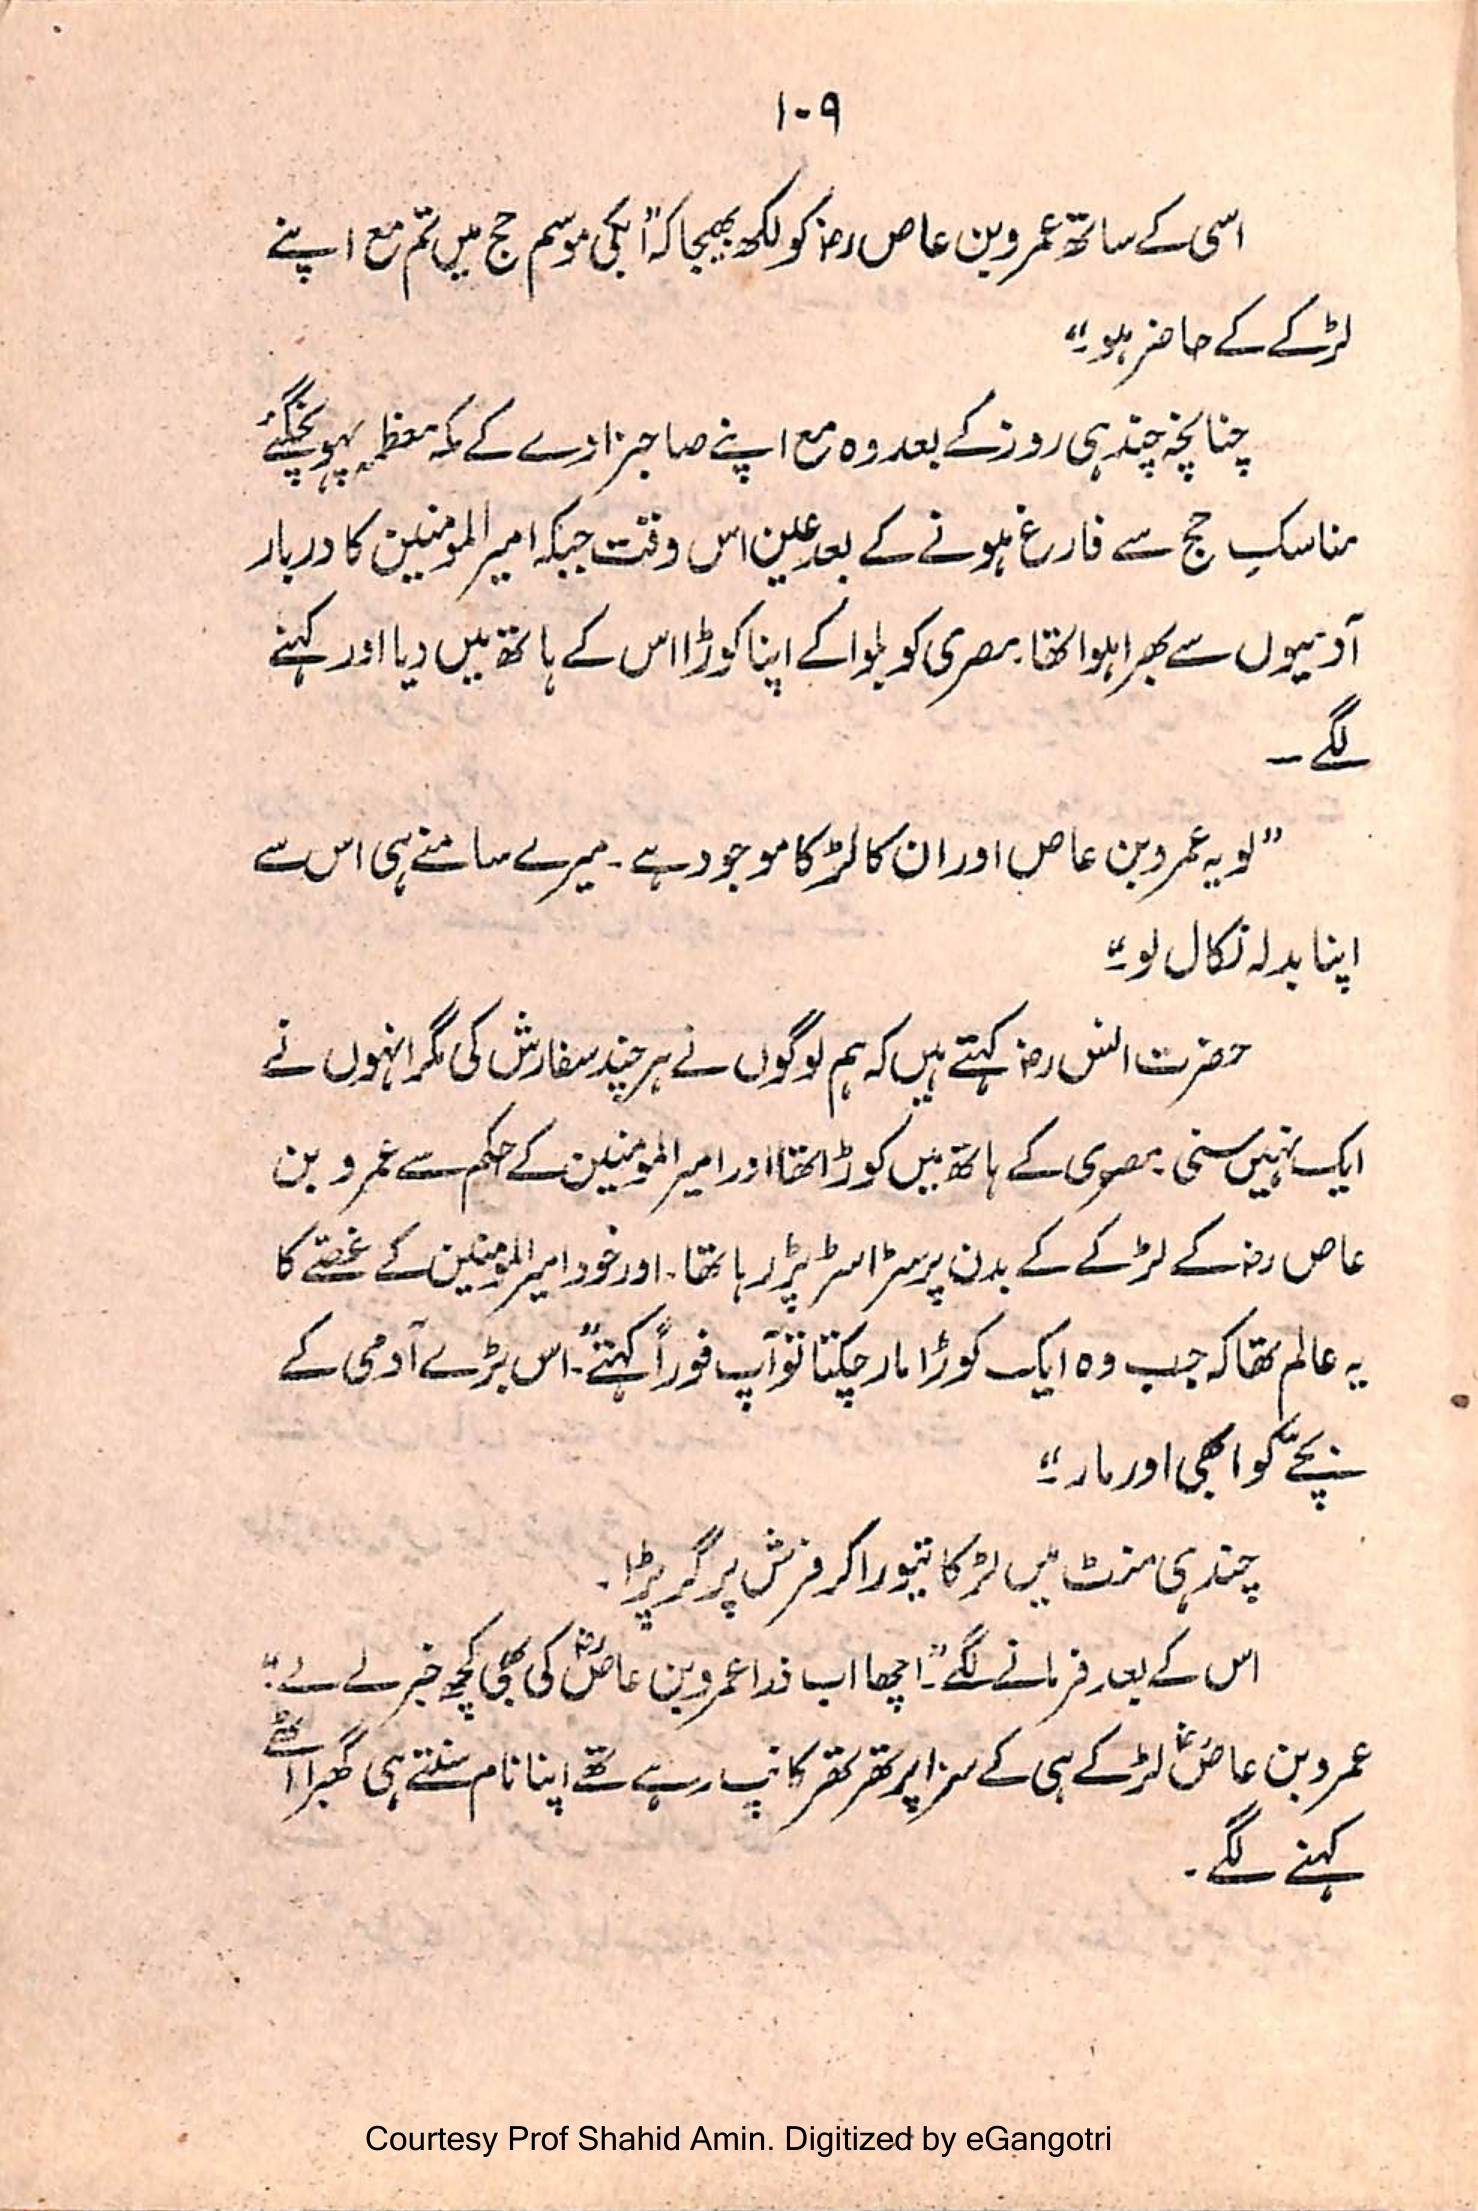 ۱۰۹
اسی کے ساتھ عمرو بن عاص رضؓ کو لکھ بھیجا کہ "ابکی موسم حج میں تم مع اپنے
لڑکے کے حاضر ہو۔"
چنانچہ چند ہی روز کے بعد وہ مع اپنے صاحبزادے کے مکہ معظمہ پہونچگئے
مناسکِ حج سے فارغ ہونے کے بعد عین اس وقت جبکہ امیر المومنین کا دربار
آدمیوں سے بھرا ہوا تھا۔ مصری کو بلوا کے اپنا کوڑا اس کے ہاتھ میں دیا اور کہنے
لگے ۔
"لو یہ عمرو بن عاص اور ان کا لڑکا موجود ہے ۔ میرے سامنے ہی اس سے
اپنا بدلہ نکال لو۔"
حضرت انس رضؓ کہتے ہیں کہ ہم لوگوں نے ہر چند سفارش کی مگر انہوں نے
ایک نہیں سنی مصری کے ہاتھ میں کوڑا تھا اور امیر المومنین کے حکم سے عمرو بن
عاص رضؓ کے لڑکے کے بدن پر سڑا سڑ پڑ رہا تھا۔ اور خود امیر المومنین کے غصّے کا
یہ عالم تھا کہ جب وہ ایک کوڑا مار چکتا تو آپ فوراً کہتے "۔ اس بڑے آدمی کے
بچّے کو ابھی اور مار۔"
چند ہی منٹ میں لڑکا تیورا کر فرش پر گر پڑا۔
اس کے بعد فرمانے لگے "۔ اچھا اب ذرا عمرو بن عاصؓ کی بھی کچھ خبر لے لے۔"
عمرو بن عاصؓ لڑکے ہی کے سزا پر تھر تھر کانپ رہے تھے اپنا نام سنتے ہی گھبرا اٹھے
کہنے لگے ۔
Courtesy Prof Shahid Amin. Digitized by eGangotri